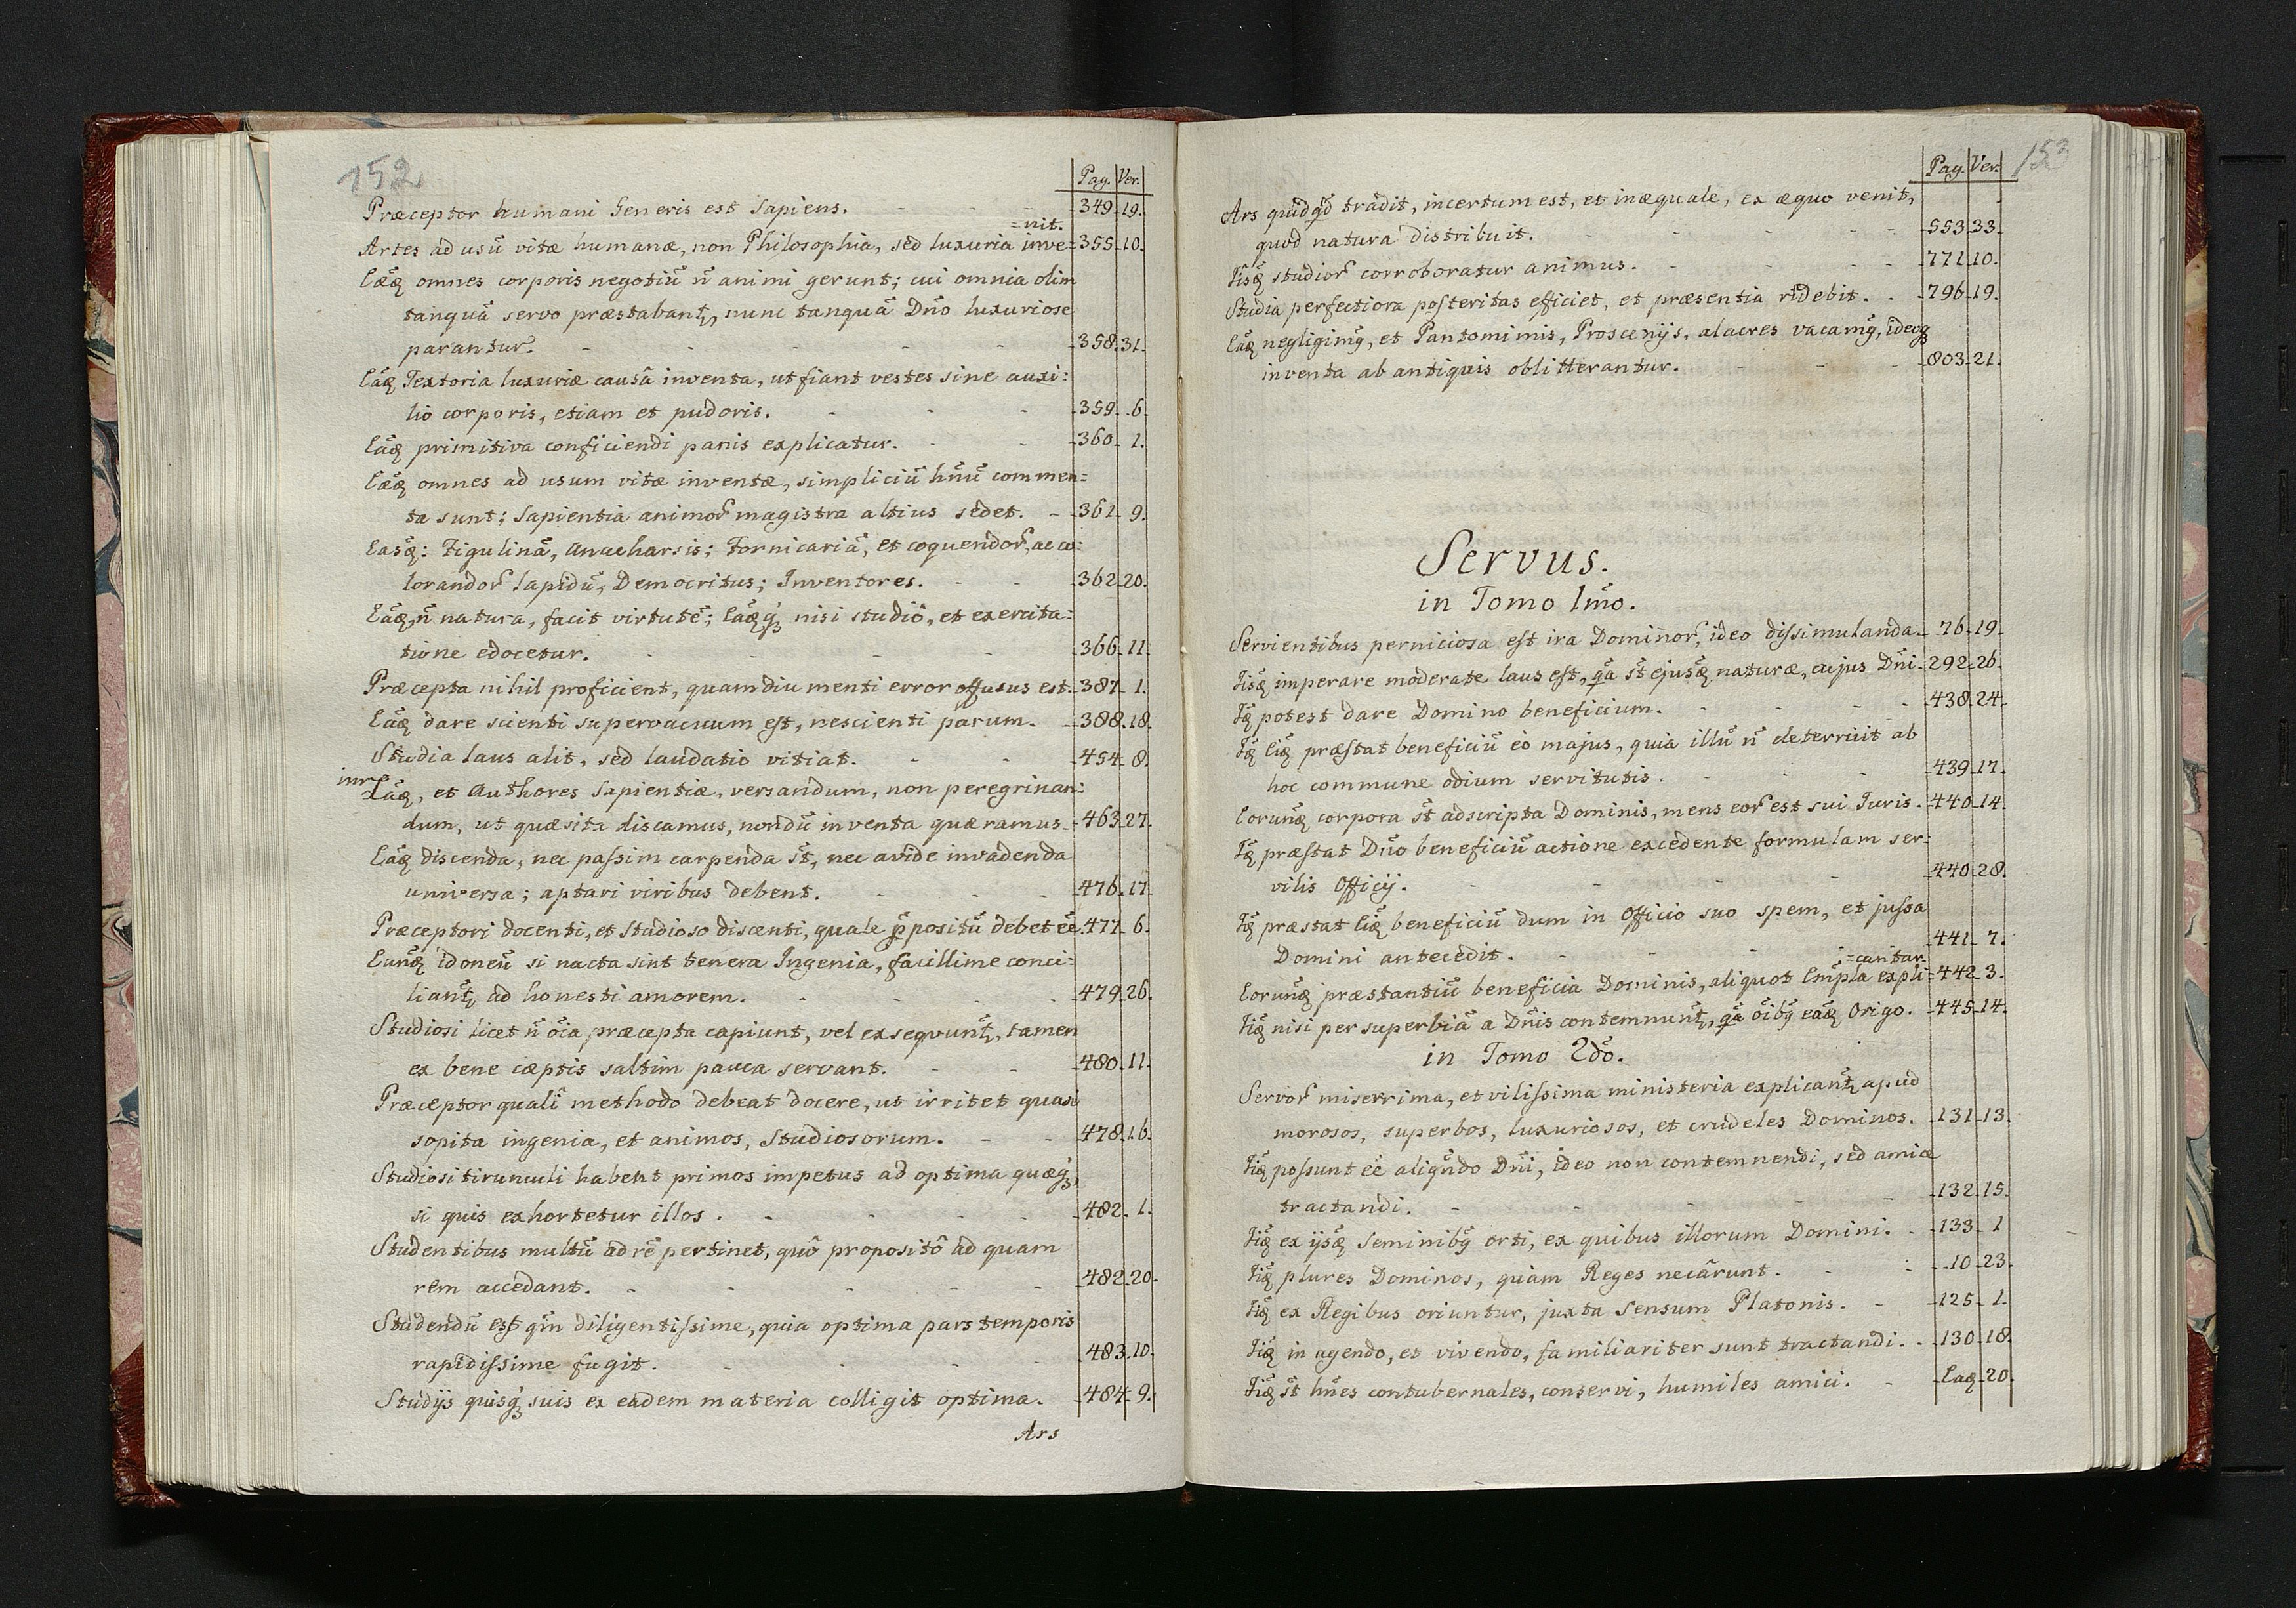 152
Pag. Ver.
Præceptor humani Generis est Sapiens. 349. 19.
=nit.
Artes ad usū vitæ humanæ, non Philosophia, sed luxuria inve= 355. 10.
omnes corporis negotiū n̄ animi gerunt; cui omnia olim
tanquā servo præstabant, nunc tanquā Dn̄o luxuriose
parantur. 358. 31.
Textoria luxuriæ causâ inventa, ut fiant vestes sine auxi:
lio corporis, etiam et pudoris. 359. 6.
primitiva conficiendi panis explicatur. 360. 1.
omnes ad usum vitæ inventæ, simpliciū hn̄ū commen=
ta sunt; Sapientia animor̄ magistra altius sedet. 361. 9.
Figulinā, Anacharsis; Fornicariā, et coquendor̄, ac co:
lorandor̄ lapidū, Democritus; Inventores. 362. 20.
n̄ natura, facit virtutē; nisi studiô, et exercita:
tione edocetur. 366. 11.
Præcepta nihil proficient, quamdiu menti error offusus est. 387. 1.
dare scienti supervacuum est, nescienti parum. 388. 18.
Studia laus alit, sed laudatio vitiat. 454. 8.
inr
et Authores Sapientiæ, versandum, non peregrinan:
dum, ut quæsita discamus, nondū inventa quæramus. 463. 27.
discenda, nec passim carpenda st̄, nec avide invadenda
universa; aptari viribus debent. 476. 17.
Præceptori docenti, et studioso discenti, quale p̄positū debet ēē. 477. 6.
idoneū si nacta sint tenera Ingenia, facillime conci:
liant̄, ad honesti amorem. 479. 26.
Studiosi licet n̄ ōīa præcepta capiunt, vel exsequunt̄, tamen
ex bene cæptis saltim pauca servant. 480. 11.
Præceptor quali methodo debeat docere, ut irritet quasi
sopita ingenia, et animos, Studiosorum. 478. 16.
Studiosi tirunculi habent primos impetus ad optima quæq,
si quis exhortetur illos. 482. 1.
Studentibus multū ad rē pertinet, quô propositô ad quam
rem accedant. 482. 20.
Studendū est qm̄ diligentissime, quia optima pars temporis
rapidissime fugit. 483. 10.
Studijs quisq suis ex eadem materia colligit optima. 484. 9.
Ars
153
Pag Ver.
Ars quidqd tradit, incertum est, et inæquale, ex æquo venit,
quod natura distribuit. 553. 33.
studior̄ corroboratur animus. 771. 10.
Studia perfectiora posteritas efficiet, et præsentia ridebit. 796. 19.
negligimq, et Pantomimis, Proscenijs, alacres vacamq, ideoq
inventa ab antiquis oblitterantur. 803. 21.
Servus.
in Tomo 1mō.
Servientibus perniciosa est ira Dominor̄, ideo dissimulanda. 76. 19.
imperare moderate laus est, qā st̄ naturæ, cujus Dn̄i. 292. 26.
potest dare Domino beneficium. 438. 24.
præstat beneficiū eo majus, quia illū n̄ deterruit ab
hoc commune odium servitutis. 439. 17.
corpora st̄ adscripta Dominis, mens eor̄ est sui Juris. 440. 14.
præstat Dn̄o beneficiū actione excedente formulam ser:
vilis Officij. 440. 28.
præstat beneficiū dum in Officio suo spem, et jussa
Domini antecedit. 441. 7.
=cantur.
præstantiū beneficia Dominis, aliquot Em̄pla expli= 442. 3.
nisi per superbiā a Dn̄is contemnunt̄, qā ōibq Origo. 445. 14.
in Tomo 2dō.
Servor̄ miserrima, et vilissima ministeria explicant̄, apud
morosos, superbos, luxuriosos, et crudeles Dominos. 131. 13.
possunt ēē aliqn̄do Dn̄i, ideo non contemnendi, sed amice
tractandi. 132. 15.
ex seminibq orti, ex quibus illorum Domini. 133. 1
plures Dominos, quàm Reges necârunt. 10. 23.
ex Regibus oriuntur, juxta Sensum Platonis. 125. 1.
in agendo, et vivendo, familiariter sunt tractandi. 130. 18.
st̄ hn̄es contubernales, conservi, humiles amici. 20.